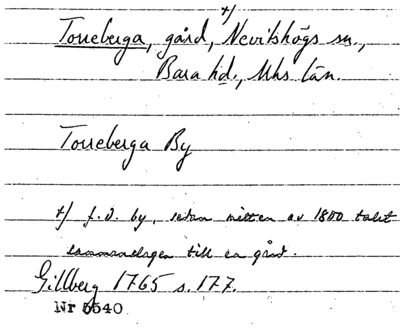 +)
Torreberga, gård, Nevitshögs sn.,
Bara hd., Mhs län.
Torreberga By
+) f.d. by, sedan mitten av 1800 talet
sammanslagen till en gård.
Gillberg 1765 s. 177.
Nr 5540